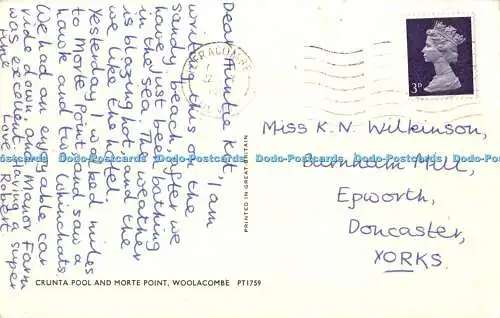 Dear Auntie Kit, I am
writing this on the
sandy beach, after we
have just been bathing
in the sea. The weather
is blazing hot, and the
we like the hotel.
Yesterday I walked miles
to Morte Point, and saw a
hawk and two Whinchats.
We had an enjoyable car
ride down and Manor Farm
was excellent. Having a super
time Love Robert
PRINTED IN GREAT BRITAIN
3D
Miss K. N. Wilkinson,
Burnham Mill,
Epworth,
Doncaster,
YORKS.
Dodo-Postcards Dodo-Postcards Dodo-Postcards Dodo-Postcards Dodo-Postcards Dodo-Postcards
CRUNTA POOL AND MORTE POINT, WOOLACOMBE PT1759